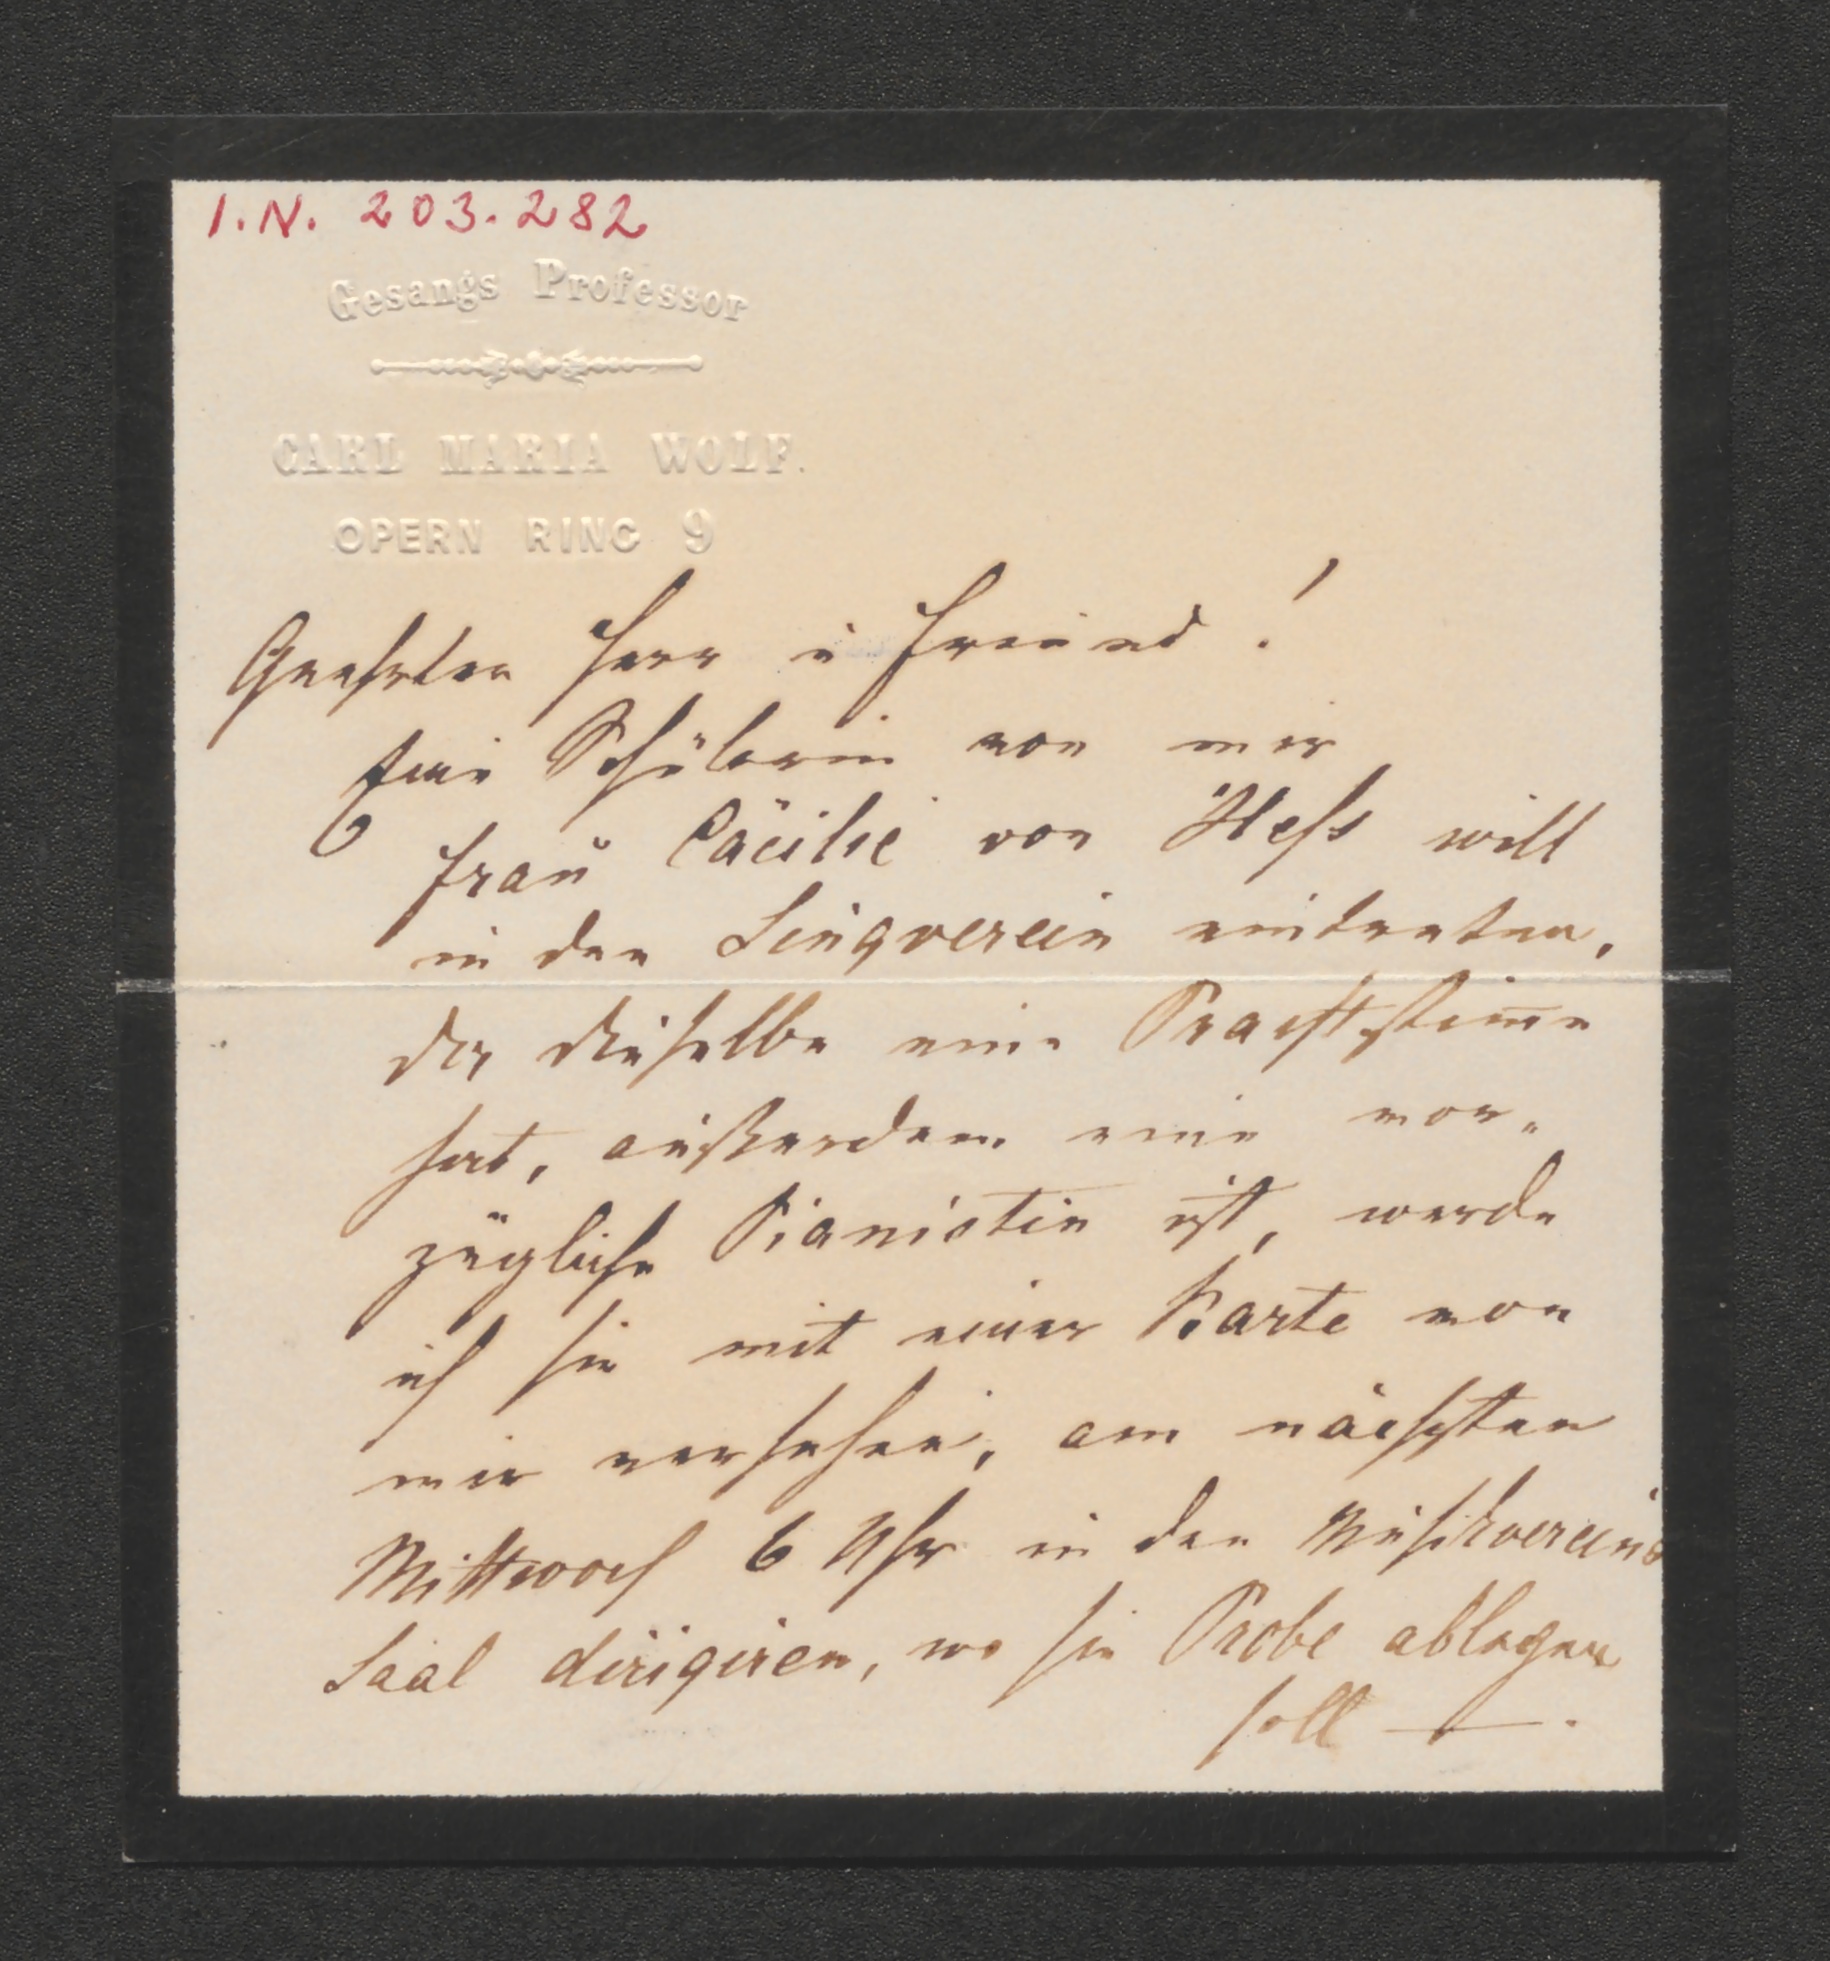 I.N. 203.282
Gesangs Professor
CARL MARIA WOLF.
OPERN RING 9
Geehrter Herr u Freund!
Eine Schülerin von mir
Frau Cäcilie von Hess will
in den Singverein eintreten,
da dieselbe eine Prachtstim̅e
hat, außerdem eine vor-
zügliche Pianistin ist, werde
ich sie mit einer Karte von
mir versehen, am nächsten
Mittwoch 6 Uhr in den Musikvereins
Saal dirigiren, wo sie Probe ablegen
soll —.